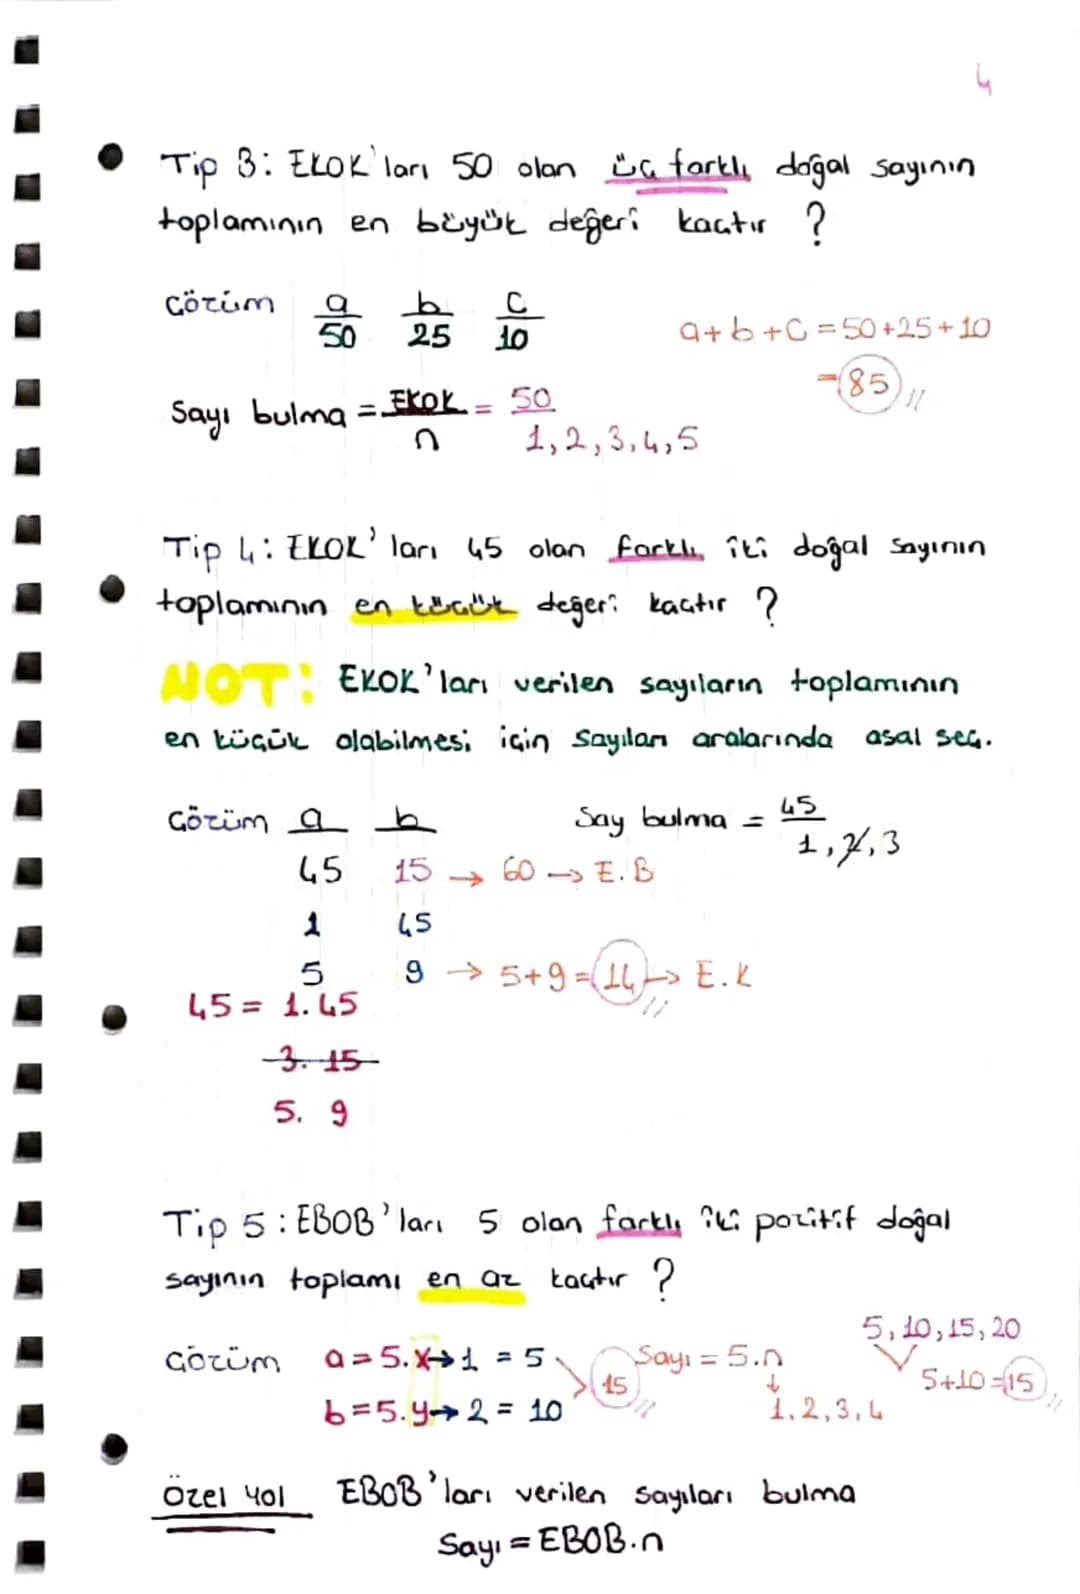 4
Tip 3: EKOK'ları 50 olan üç farklı doğal sayının
toplamının en büyük değeri kaçtır ?
Çözüm a/50 b/25 c/10
a+b+c = 50+25+10
= 85
Sayı bulma = EKOK/n = 50/1,2,3,4,5
Tip 4: EKOK'ları 45 olan farklı iki doğal sayının
toplamının en küçük değeri kaçtır ?
NOT: EKOK'ları verilen sayıların toplamının
en küçük olabilmesi için sayıları aralarında asal seç.
Çözüm a b
Say bulma = 45/1,2,3
45 15 → 60 → E.B
1 45
5 9 → 5+9 = 14 → E.K
45 = 1.45
3.15
5. 9
Tip 5: EBOB'ları 5 olan farklı iki pozitif doğal
sayının toplamı en az kaçtır ?
Çözüm a = 5.x → 1 = 5
b = 5.y → 2 = 10
15
Sayı = 5.n
↓
1,2,3,4
5,10,15,20
5+10=15
Özel Yol EBOB'ları verilen sayıları bulma
Sayı = EBOB.n